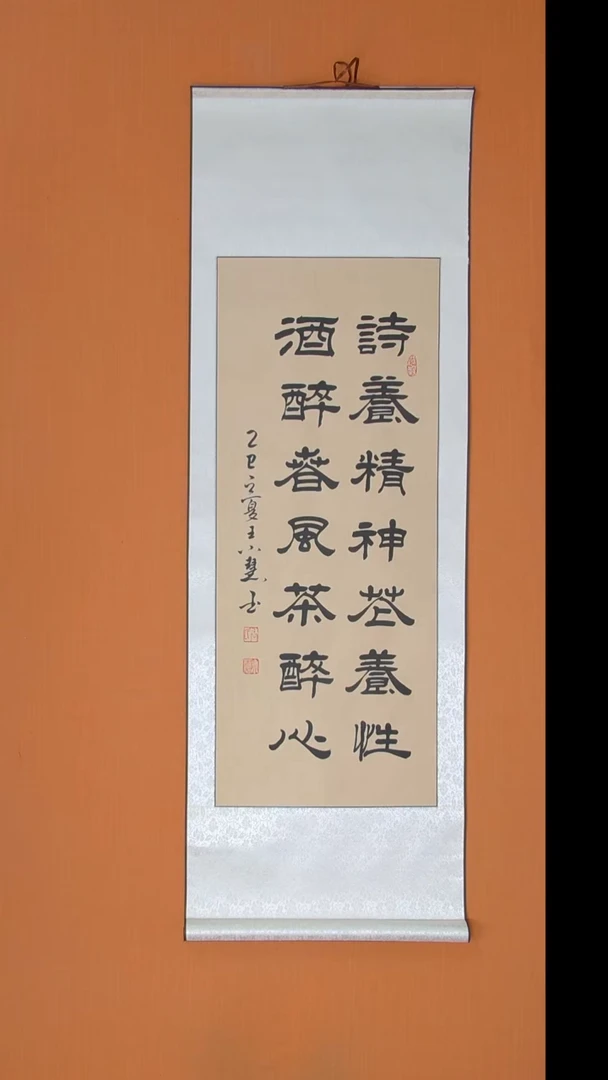 詩養精神花養性
酒醉春風茶醉心
乙巳之夏王小书